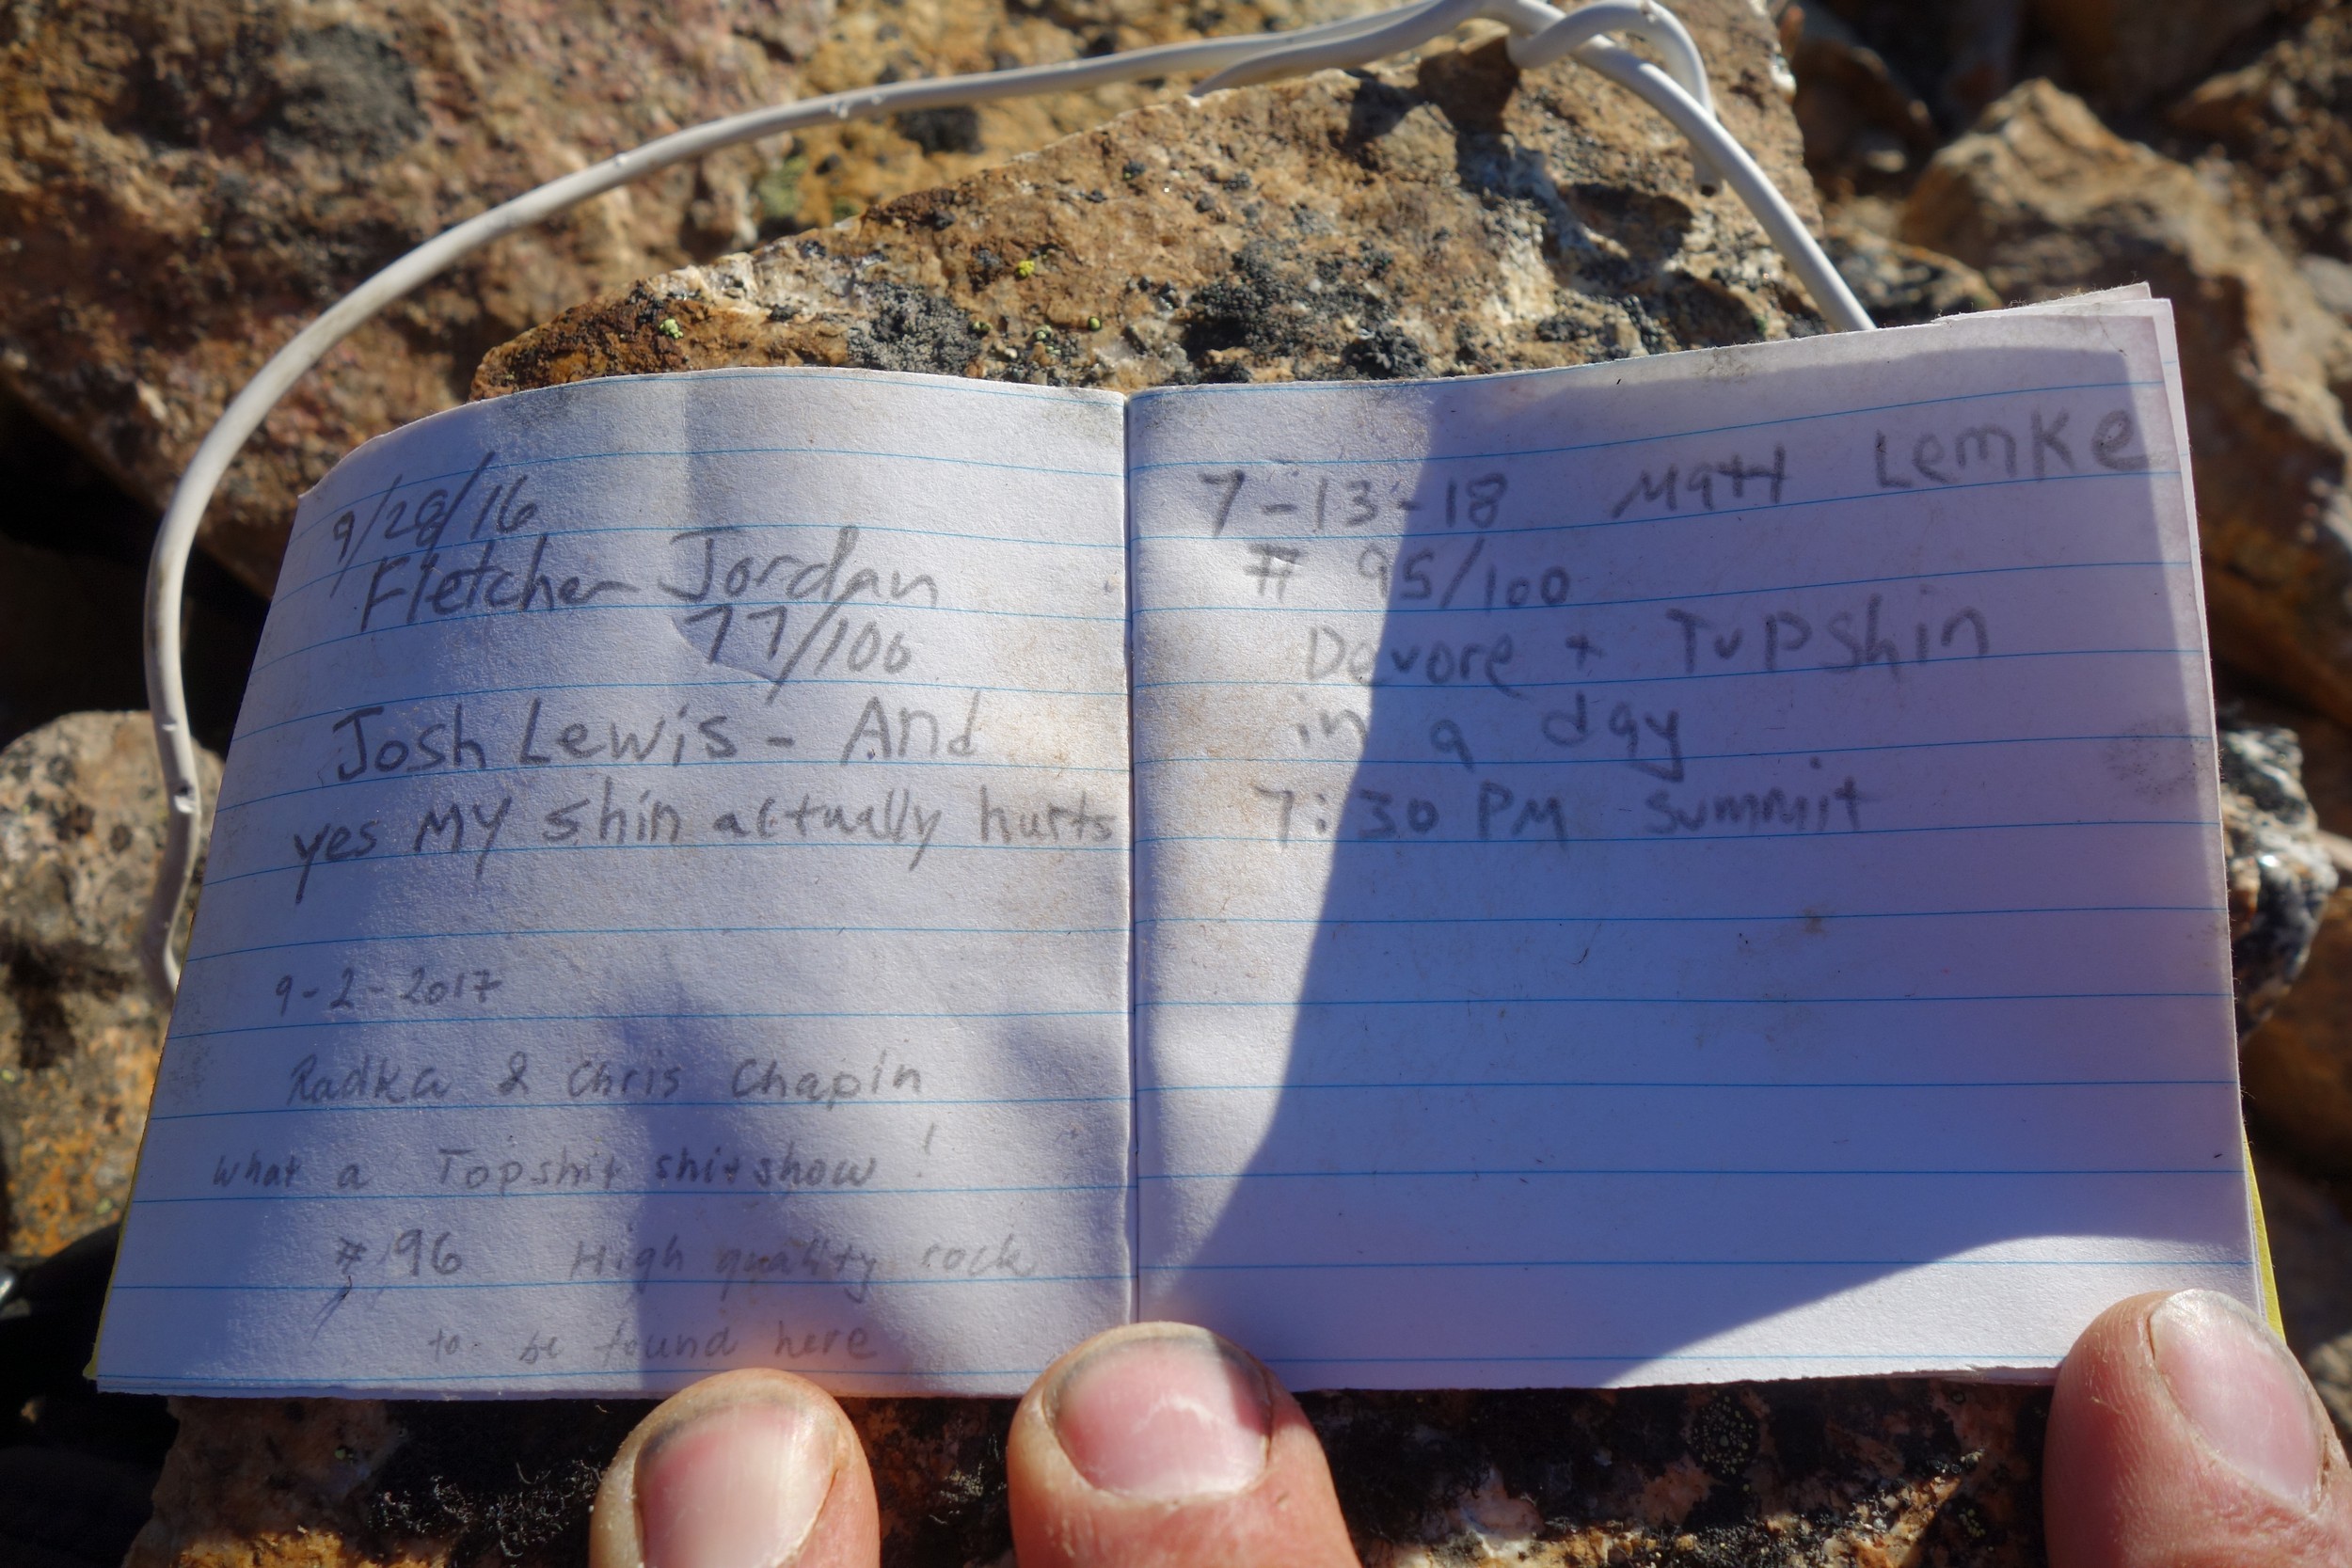 9/28/16
Fletcher Jordan
77/100
Josh Lewis - And
yes MY shin actually hurts
9-2-2017
Radka & Chris Chapin
What a Topshit shitshow!
#96 High quality rock
to be found here
7-13-18 Matt Lemke
# 95/100
Devore + Tupshin
in a day
7:30 PM summit